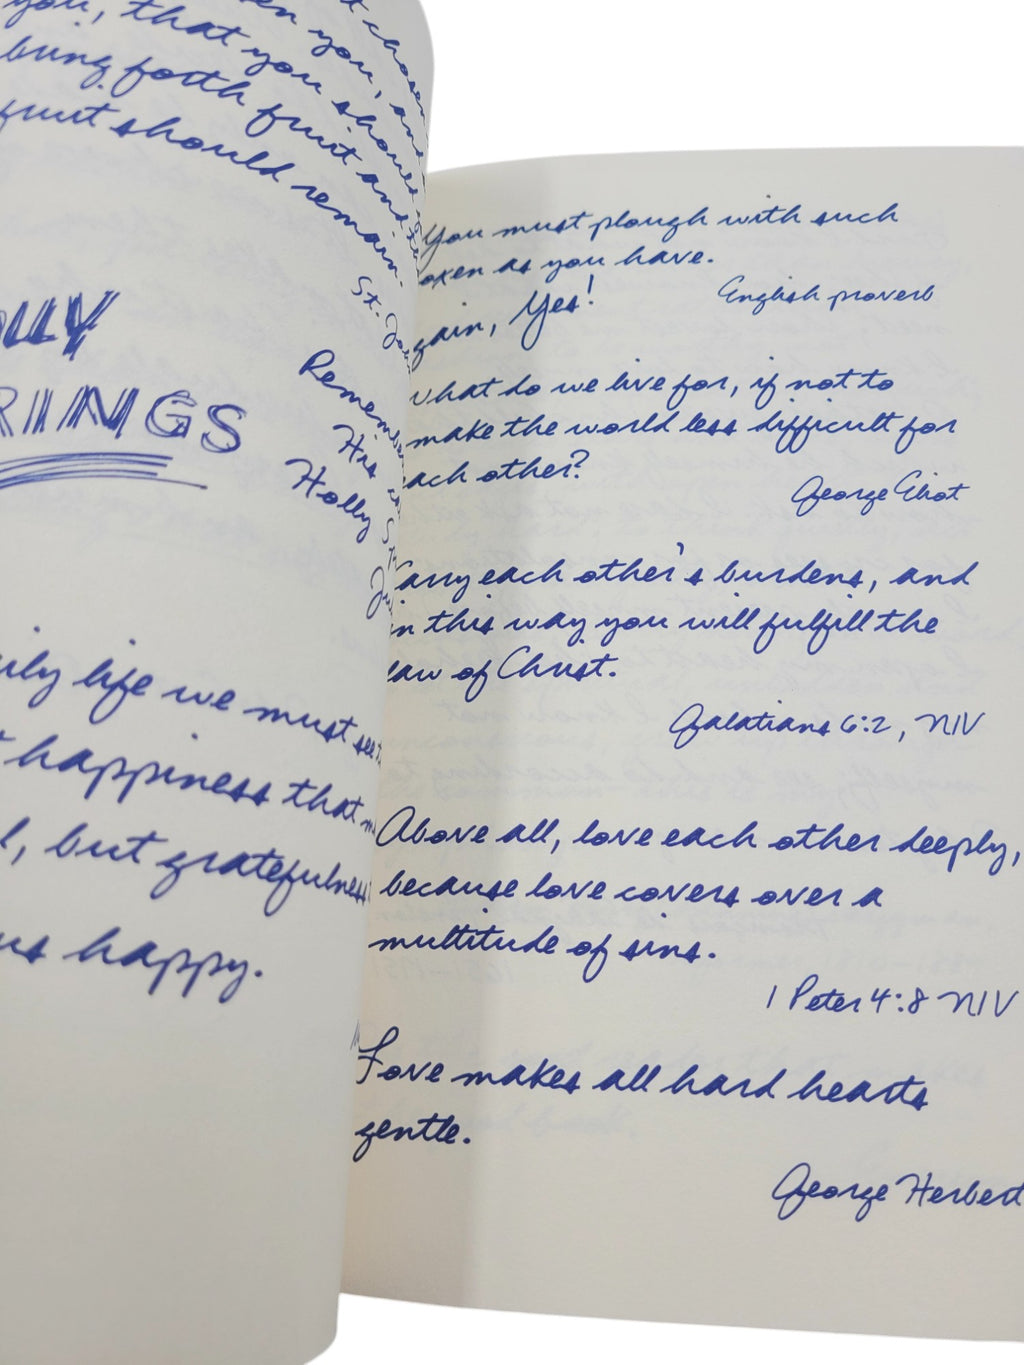 you, that you should
bring forth fruit and
fruit should remain.
St.
RINGS
Remember
His
Holly
life we must see
happiness that
but gratefulness
happy.
You must plough with such
oxen as you have.
English proverb
gain, Yes!
what do we live for, if not to
make the world less difficult for
each other?
George Eliot
Carry each other's burdens, and
in this way you will fulfill the
law of Christ.
Galatians 6:2, NIV
Above all, love each other deeply,
because love covers over a
multitude of sins.
1 Peter 4:8 NIV
Love makes all hard hearts
gentle.
George Herbert